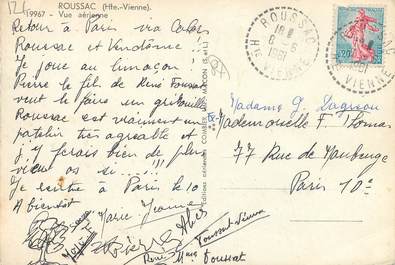 ROUSSAC (Hte.-Vienne).
19967 - Vue aérienne
Retour à Paris via Cahors
Roussac et Vendôme!!
Je joue au limaçon!
Pierre le fils de René Toussat
veut le faire un gribouillis
Roussac est vraiment un
patelin très agréable et
j'y ferais bien de plus
vieux os si...!!!
Je rentre à Paris le 10
A bientôt
Marie Jeanne
Pierre
René
Toussat
Editions aériennes COMBIER IMP. MACON (S.-et-L.)
ROUSSAC
18 H
6 - 6
1961
Hte VIENNE
0,20
VIENNE
Madame G. Dagreou
Mademoiselle F. Thomas
77 Rue de Maubeuge
Paris 10e